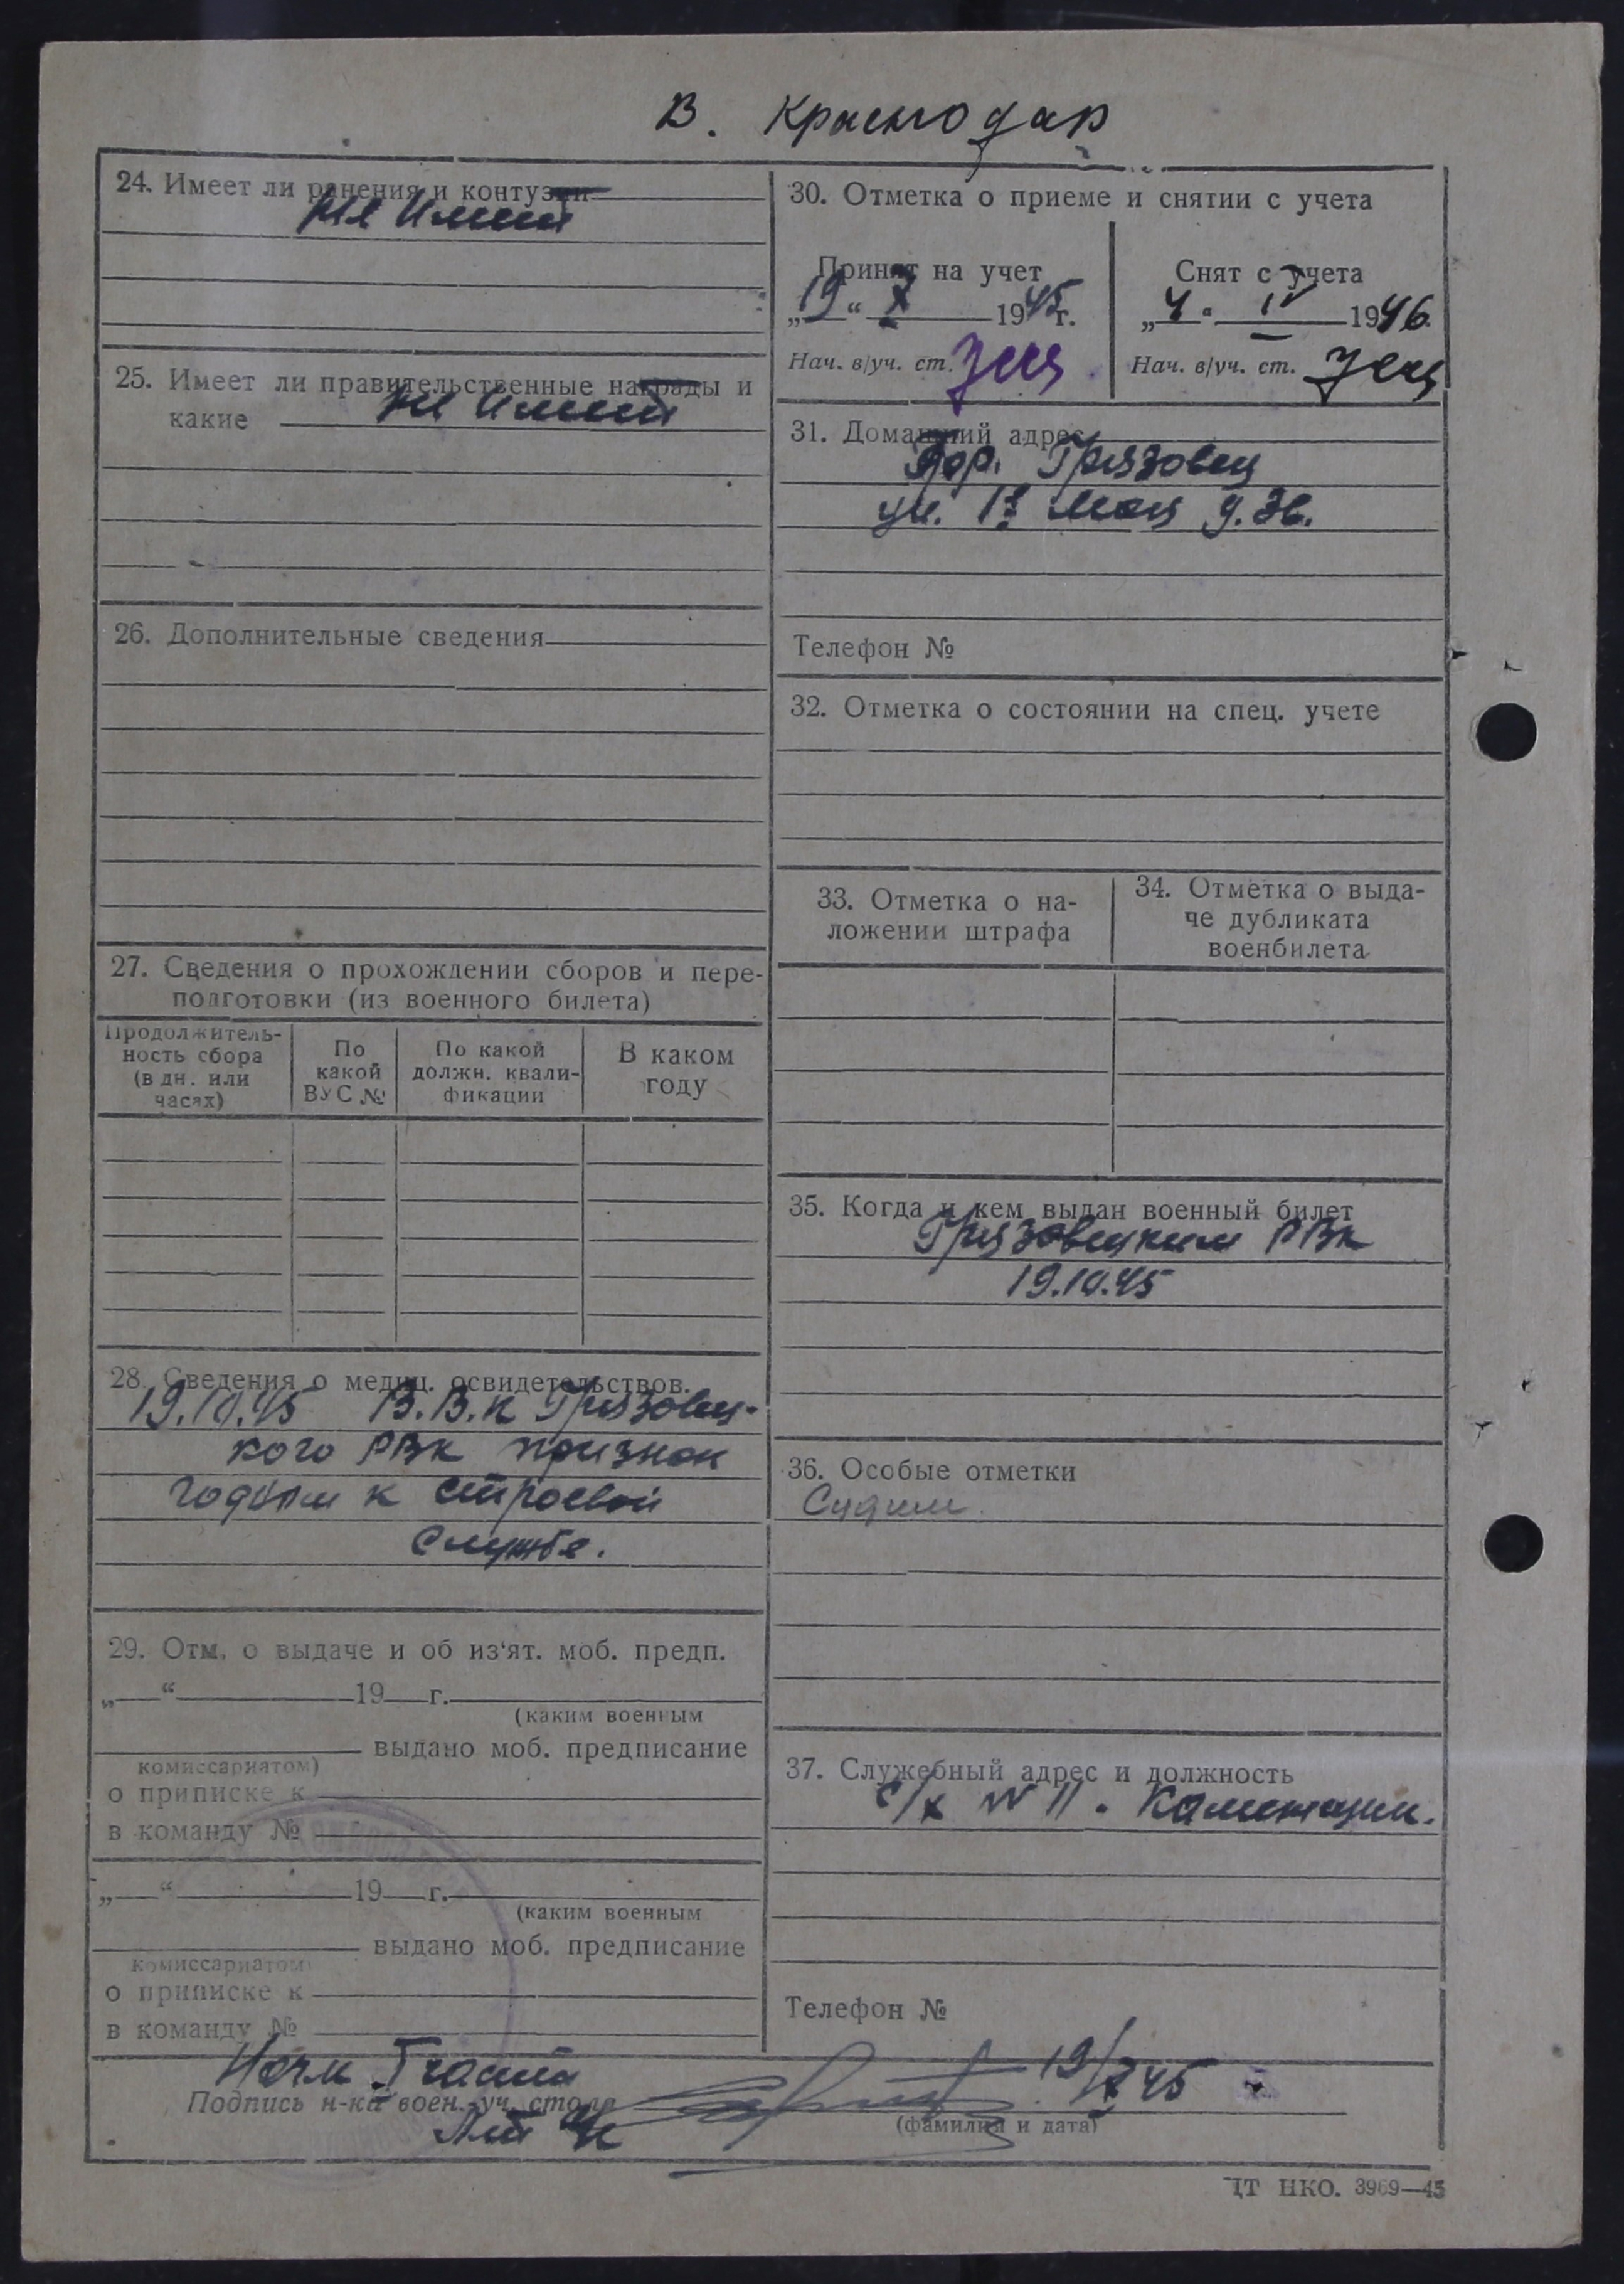 В. Краснодар
24. Имеет ли ранения и контузии
не имеет
25. Имеет ли правительственные награды и
какие не имеет
26. Дополнительные сведения
27. Сведения о прохождении сборов и пере-
подготовки (из военного билета)
Продолжитель-
ность сбора
(в дн. или
часах)
По
какой
ВУС №
По какой
должн. квали-
фикации
В каком
году
28. Сведения о медиц. освидетельствов.
19.10.45 В.В.К Грязовец-
кого РВК признан
годным к строевой
службе.
29. Отм. о выдаче и об из'ят. моб. предп.
„ “ 19 г.
(каким военным
выдано моб. предписание
комиссариатом)
о приписке к
в команду №
„ “ 19 г.
(каким военным
выдано моб. предписание
комиссариатом)
о приписке к
в команду №
30. Отметка о приеме и снятии с учета
Принят на учет
„19“ X 1945г.
Нач. в/уч. ст.
Снят с учета
„4“ IV 1946.
Нач. в/уч. ст.
31. Домашний адрес
Гор. Грязовец
ул. 1е Мая д. 36.
Телефон №
32. Отметка о состоянии на спец. учете
33. Отметка о на-
ложении штрафа
34. Отметка о выда-
че дубликата
военбилета
35. Когда и кем выдан военный билет
Грязовецким РВК
19.10.45
36. Особые отметки
Судим.
37. Служебный адрес и должность
с/х № 11.
Телефон №
Начм I части
Подпись н-ка воен.-уч. стола
19/X 45
(фамилия и дата)
ЦТ НКО. 3969—45